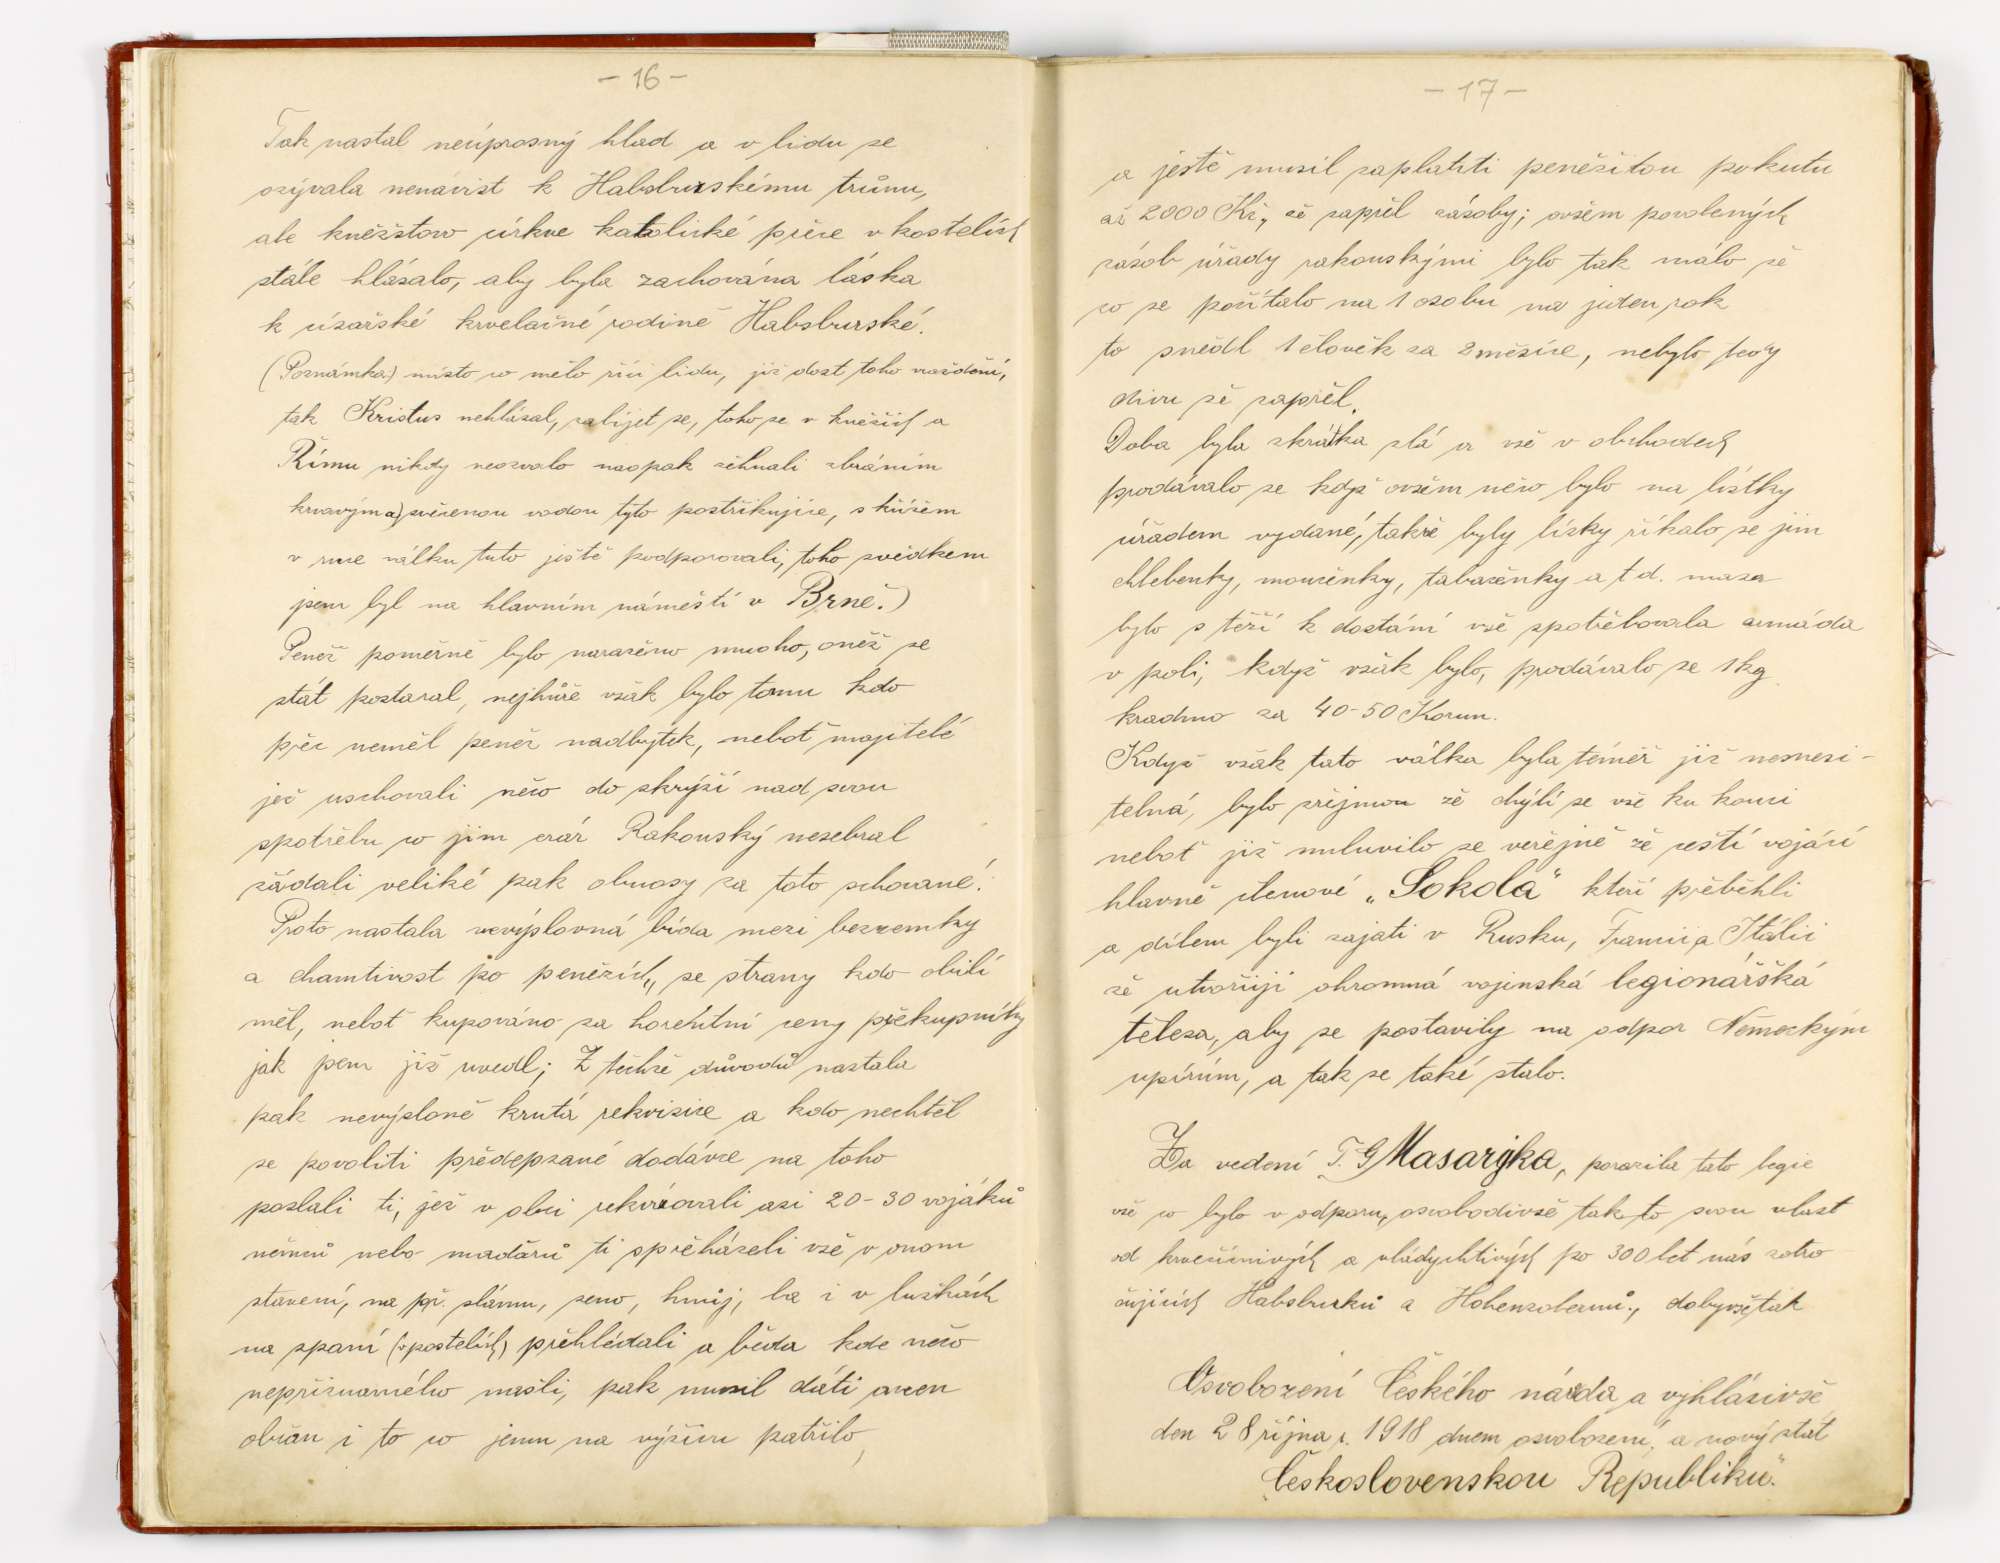 - 16 -
Tak nastal neúprosný hlad a v lidu se
ozývala nenávist k Habsburskému trůnu,
ale kněžstovo církve katolické přece v kostelích
stále hlásalo, aby byla zachována láska
k císařské krvelačné rodině Habsburské.
(Poznámka) místo co mělo říci lidu, již dost toho vraždění,
tak Kristus nehlásal, zabíjet se, toho se v kněžích a
Římu nikdy neozvalo naopak žehnali zbraním
krvavým a) svěcenou vodou tyto postřikujíce, s křížem
v ruce válku tuto ještě podporovali, toho svědkem
jsem byl na hlavním náměstí v Brně.)
Peněz poměrně bylo naraženo mnoho, oněž se
stát postaral, nejhůře však bylo tomu kdo
přec neměl peněz nadbytek, neboť majitelé
jež uschovali něco do skrýší nad svou
spotřebu co jim erár Rakouský nesebral
žádali veliké pak obnosy za toto schované.
Proto nastala nevýslovná bída mezi bezzemky
a chamtivost po penězích, se strany kdo obilí
měl, neboť kupováno za horentní ceny překupníky
jak jsem již uvedl; Z těchže důvodů nastala
pak nevýsloně krutá rekvisice a kdo nechtěl
se povoliti předepsané dodávce na toho
poslali ti, jež v obci rekvírovali asi 20-30 vojáků
němců nebo maďarů ti zpřeházeli vše v onom
stavení, na př. slámu, seno, hnůj, ba i v lužkách
na spaní (v postelích) přehlédali a běda kde něco
nepřiznaného našli, pak musil dáti onen
občan i to co jemu na výživu patřilo,
- 17 -
a ještě musil zaplatiti peněžitou pokutu
až 2000 Kč, že zapřel zásoby; ovšem povolených
zásob úřady rakouskými bylo tak málo že
co se počítalo na 1 osobu na jeden rok
to snědl 1 člověk za 2 měsíce, nebylo tedy
divu že zapřel.
Doba byla zkrátka zlá a vše v obchodech
prodávalo se když ovšem něco bylo na lístky
úřadem vydané, takže byly lísky říkalo se jim
chlebenky, moučenky, tabačenky a t d. masa
bylo s těží k dostání vše spotřebovala armáda
v poli, když však bylo, prodávalo se 1 kg
kradmo za 40-50 Korun.
Když však tato válka byla téměř již nesnesi-
telná, bylo zřejmou že chýlí se vše ku konci
neboť již mluvilo se veřejně že čeští vojáci
hlavně členové „Sokola" kteří přeběhli
a dílem byli zajati v Rusku, Francii a Itálii
že utvořijí ohromná vojenská legionářská
tělesa, aby se postavily na odpor Německým
upírům, a tak se také stalo.
Za vedení T. G Masarjka, porazila tato legie
vše co bylo v odporu, osvobodivše tak to svou vlast
od krvežíznivých a vládychtivých po 300 let nás zotro
čujících Habsburků a Hohenzolernů., dobyvše tak
Osvobození Českého národa a vyhlásivše
den 28 října r. 1918 dnem osvobození, a nový stát
„Československou Republiku."